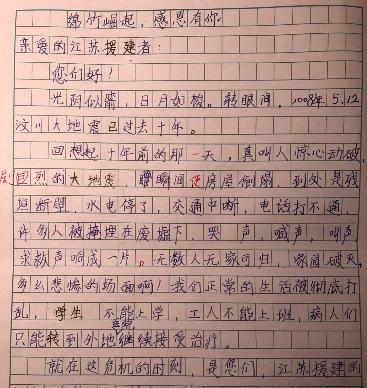 绵竹崛起，感恩有你
亲爱的江苏援建者：
您们好！
光阴似箭，日月如梭。转眼间，2008年5.12
汶川大地震已过去十年。
回想起十年前的那一天，真叫人惊心动破，
巨烈的大地震，瞬间使房屋倒塌，到处是残
垣断壁，水电停了，交通中断，电话打不通，
许多人被掩埋在废墟下，哭声，喊声，叫声，
求救声响成一片。无数人无家可归，家园破灭，
多么悲惨的场面啊！我们正常的生活被彻底打
乱，学生不能上学，工人不能上班，病人们
只能转到外地医院继续接受治疗。
就在这危机的时刻，是您们，江苏援建的